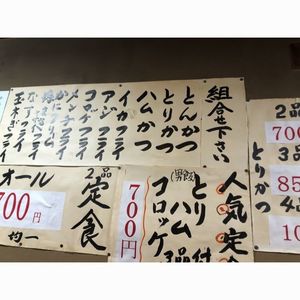 組合せ下さい
とんかつ
とりかつ
ハムかつ
イカフライ
アジフライ
コロッケフライ
メンチフライ
かにクリーム
玉ネギフライ
2品
700
3品
85
とりかつ
4品
10
人気定
とりハムコロッケ
(男飯)
3品付
700円
2品定食
オール
700円
均一